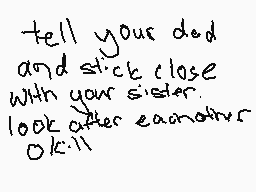 tell your dad
and stick close
with your sister.
look after eachother
ok:ll